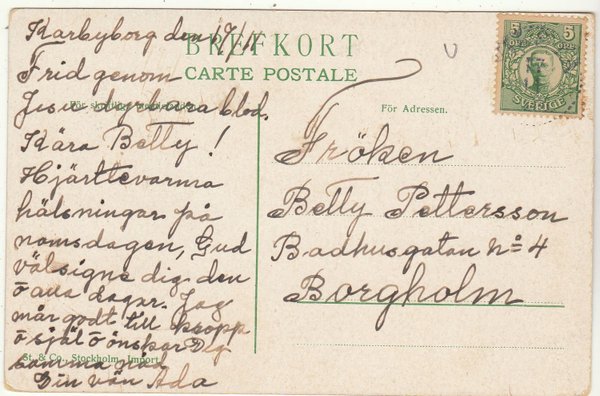 Karbyborg den 17/11
BREFKORT
CARTE POSTALE
Frid genom
Jesu dyrbara blod.
För Adressen.
Kära Betty!
Hjärttevarma
hälsningar på
namsdagen, Gud
välsigne dig den
o alla dagar. Jag
mår godt till kropp
o själ o önskar Dig
samma nåd
Din vän Ada
St. & Co., Stockholm. Import.
5 5
ÖRE ÖRE
SVERIGE
Fröken
Betty Pettersson
Badhusgatan No 4
Borgholm